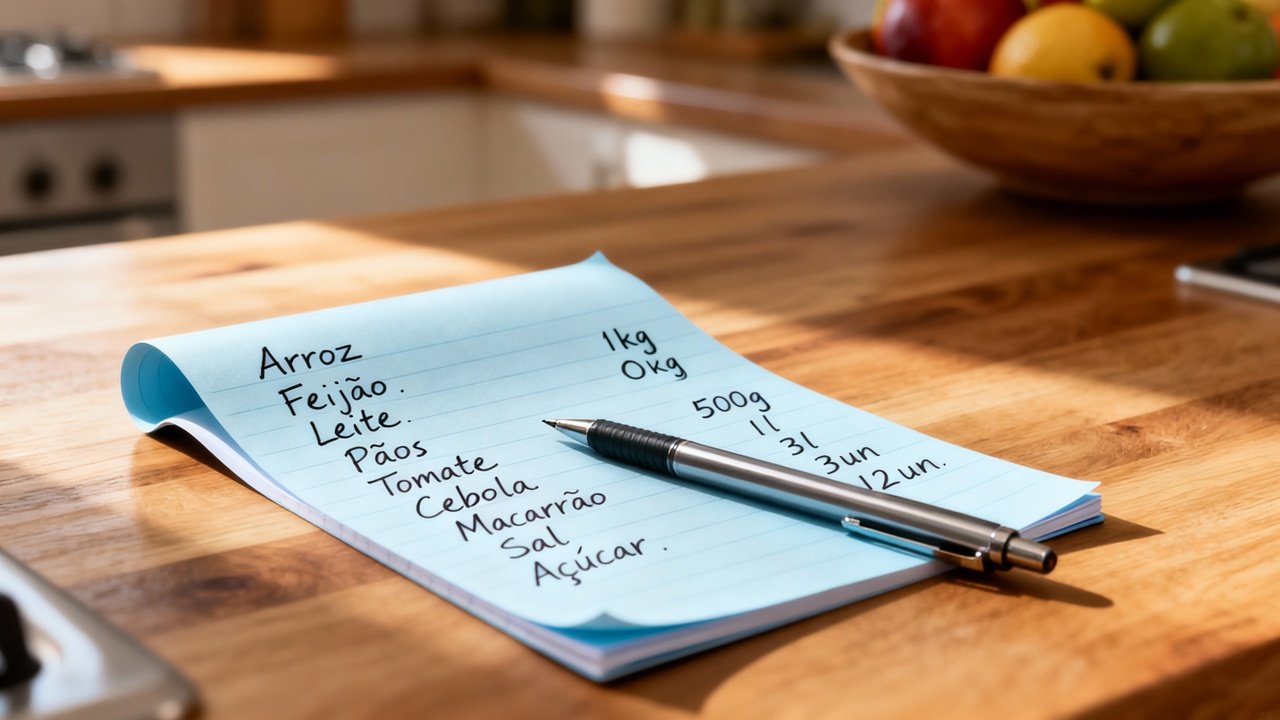 Arroz 1kg
Feijão. 0kg
Leite. 500g
Pãos 1l
Tomate 3l
Cebola 3un
Macarrão 12un.
Sal
Açúcar.